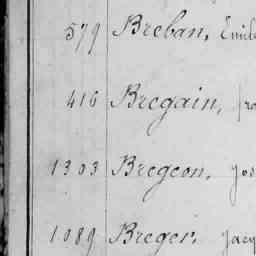 579 Breban, Emile
416 Bregain, fra
1303 Bregeon, Jos
1089 Breger, Jacq